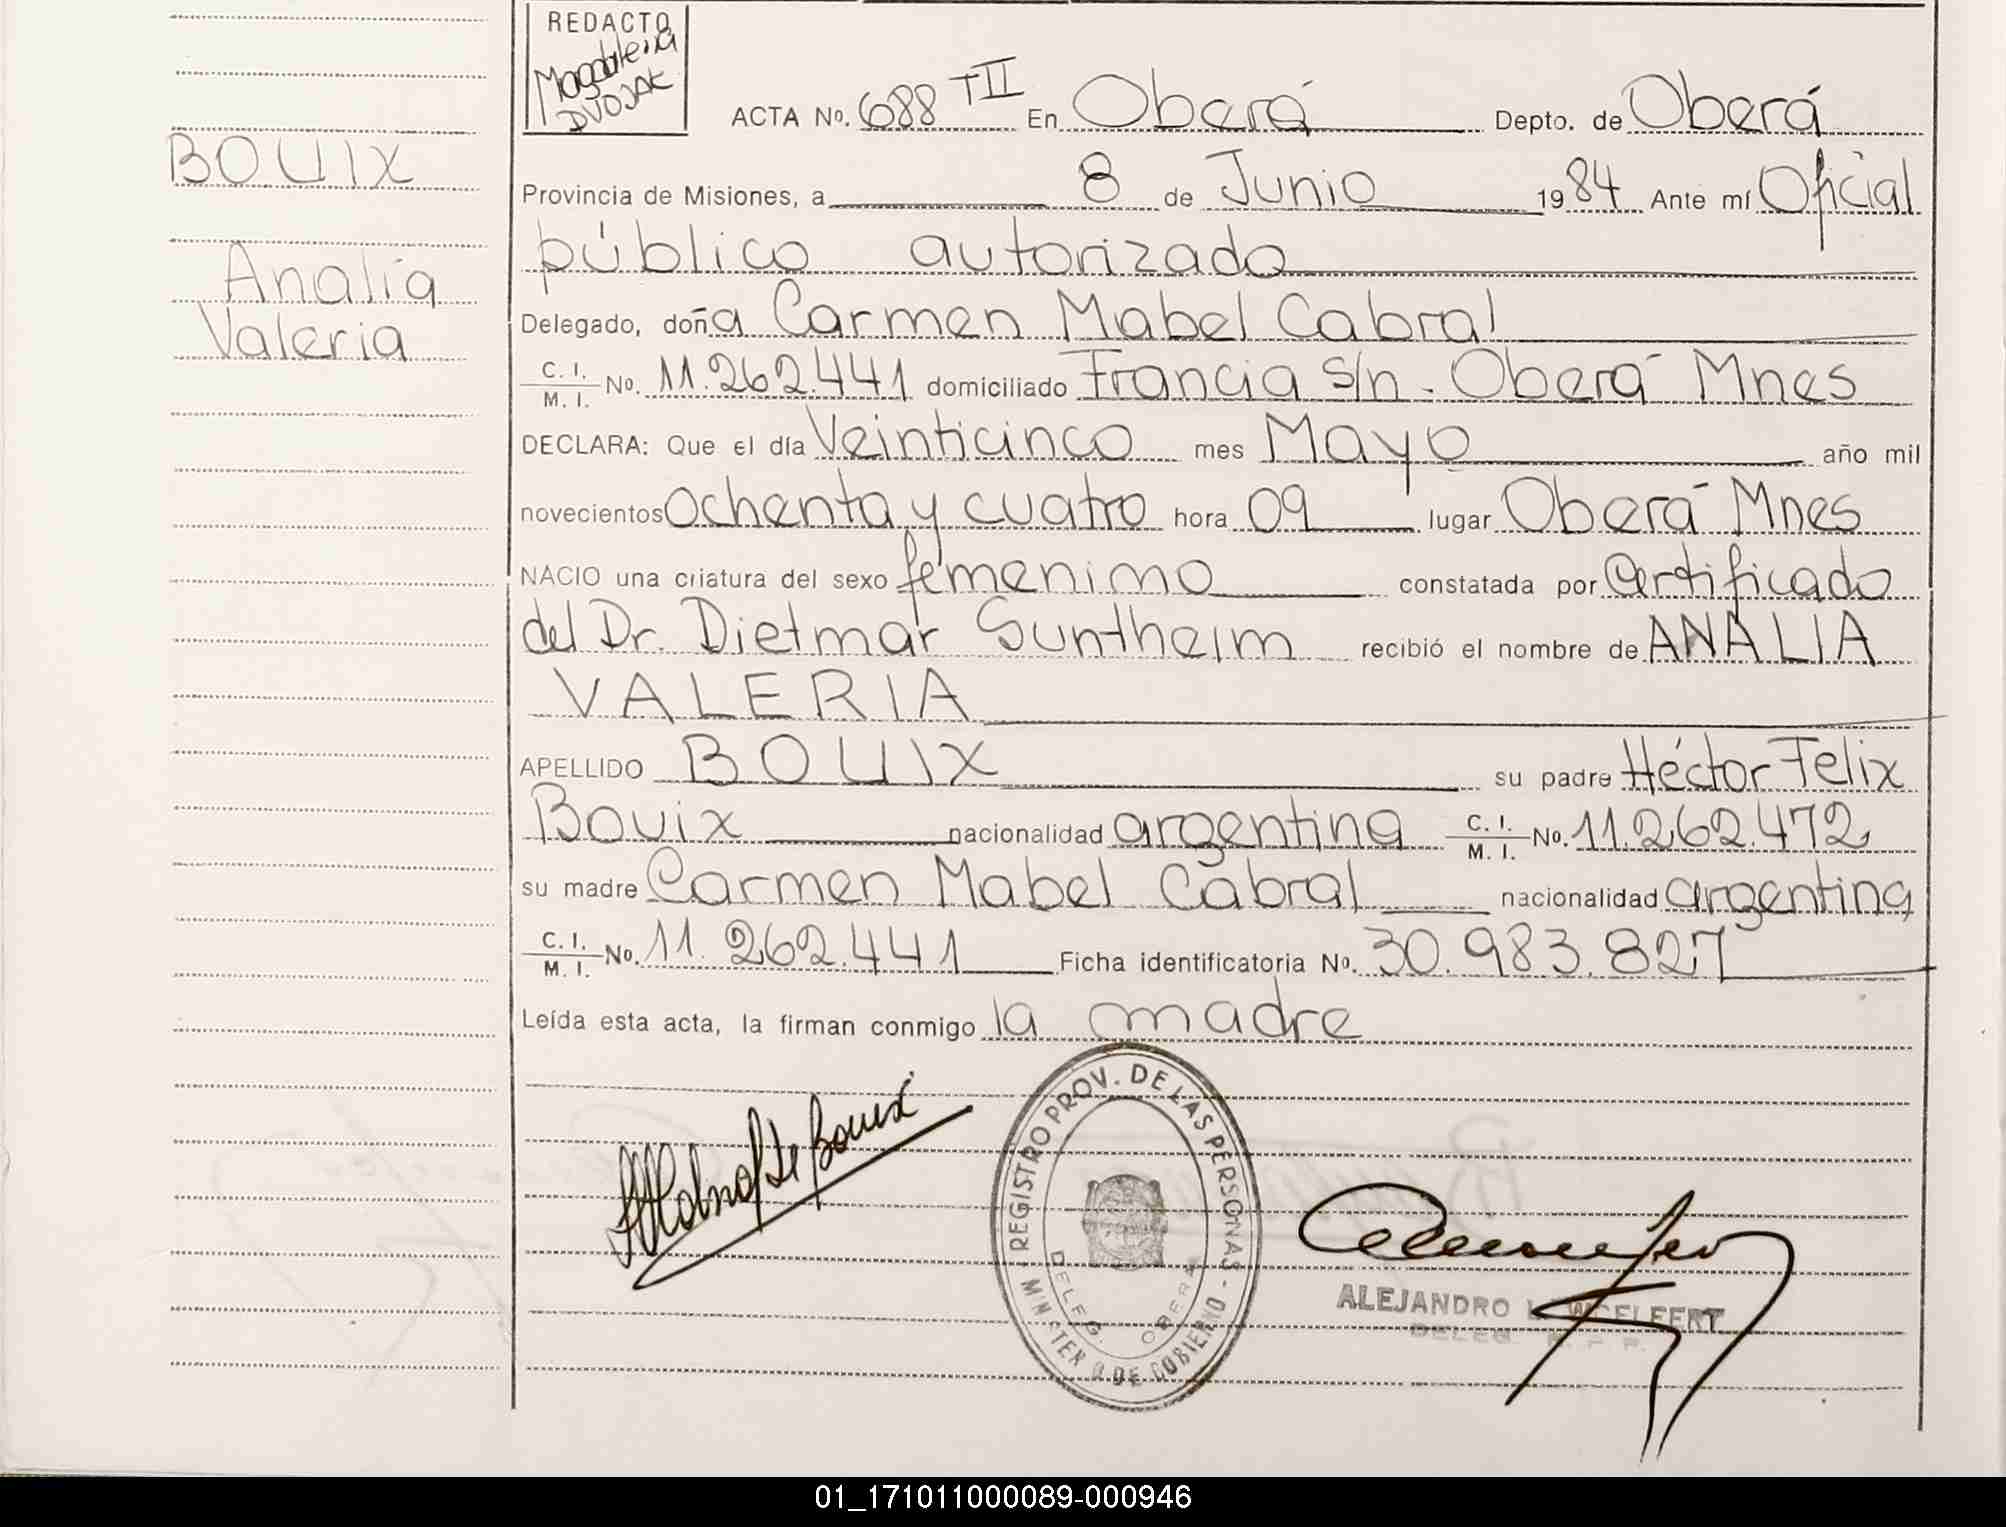 REDACTO
Magdalena
DVOJAK
ACTA No. 688 TII En Oberá Depto. de Oberá
BOUIX
Provincia de Misiones, a 8 de Junio 1984 Ante mí Oficial
público autorizado
Analía
Delegado, doña Carmen Mabel Cabral
Valeria
C. I. M. I. No. 11.262.441 domiciliado Francia s/n. Oberá Mnes
DECLARA: Que el día Veinticinco mes Mayo año mil
novecientos ochenta y cuatro hora 09 lugar Oberá Mnes
NACIO una criatura del sexo femenimo constatada por Certificado
del Dr. Dietmar Suntheim recibió el nombre de ANALIA
VALERIA
APELLIDO BOUIX su padre Héctor Felix
Bouix nacionalidad argentina C. I. M. I. No. 11.262.472
su madre Carmen Mabel Cabral nacionalidad argentina
C. I. M. I. No. 11.262.441 Ficha identificatoria No. 30.983.827
Leída esta acta, la firman conmigo la madre
de Bouix
REGISTRO PROV. DE LAS PERSONAS - MINISTERIO DE GOBIERNO -
DELEG. OBERA
ALEJANDRO
DELEG. R. P. P.
01_171011000089-000946